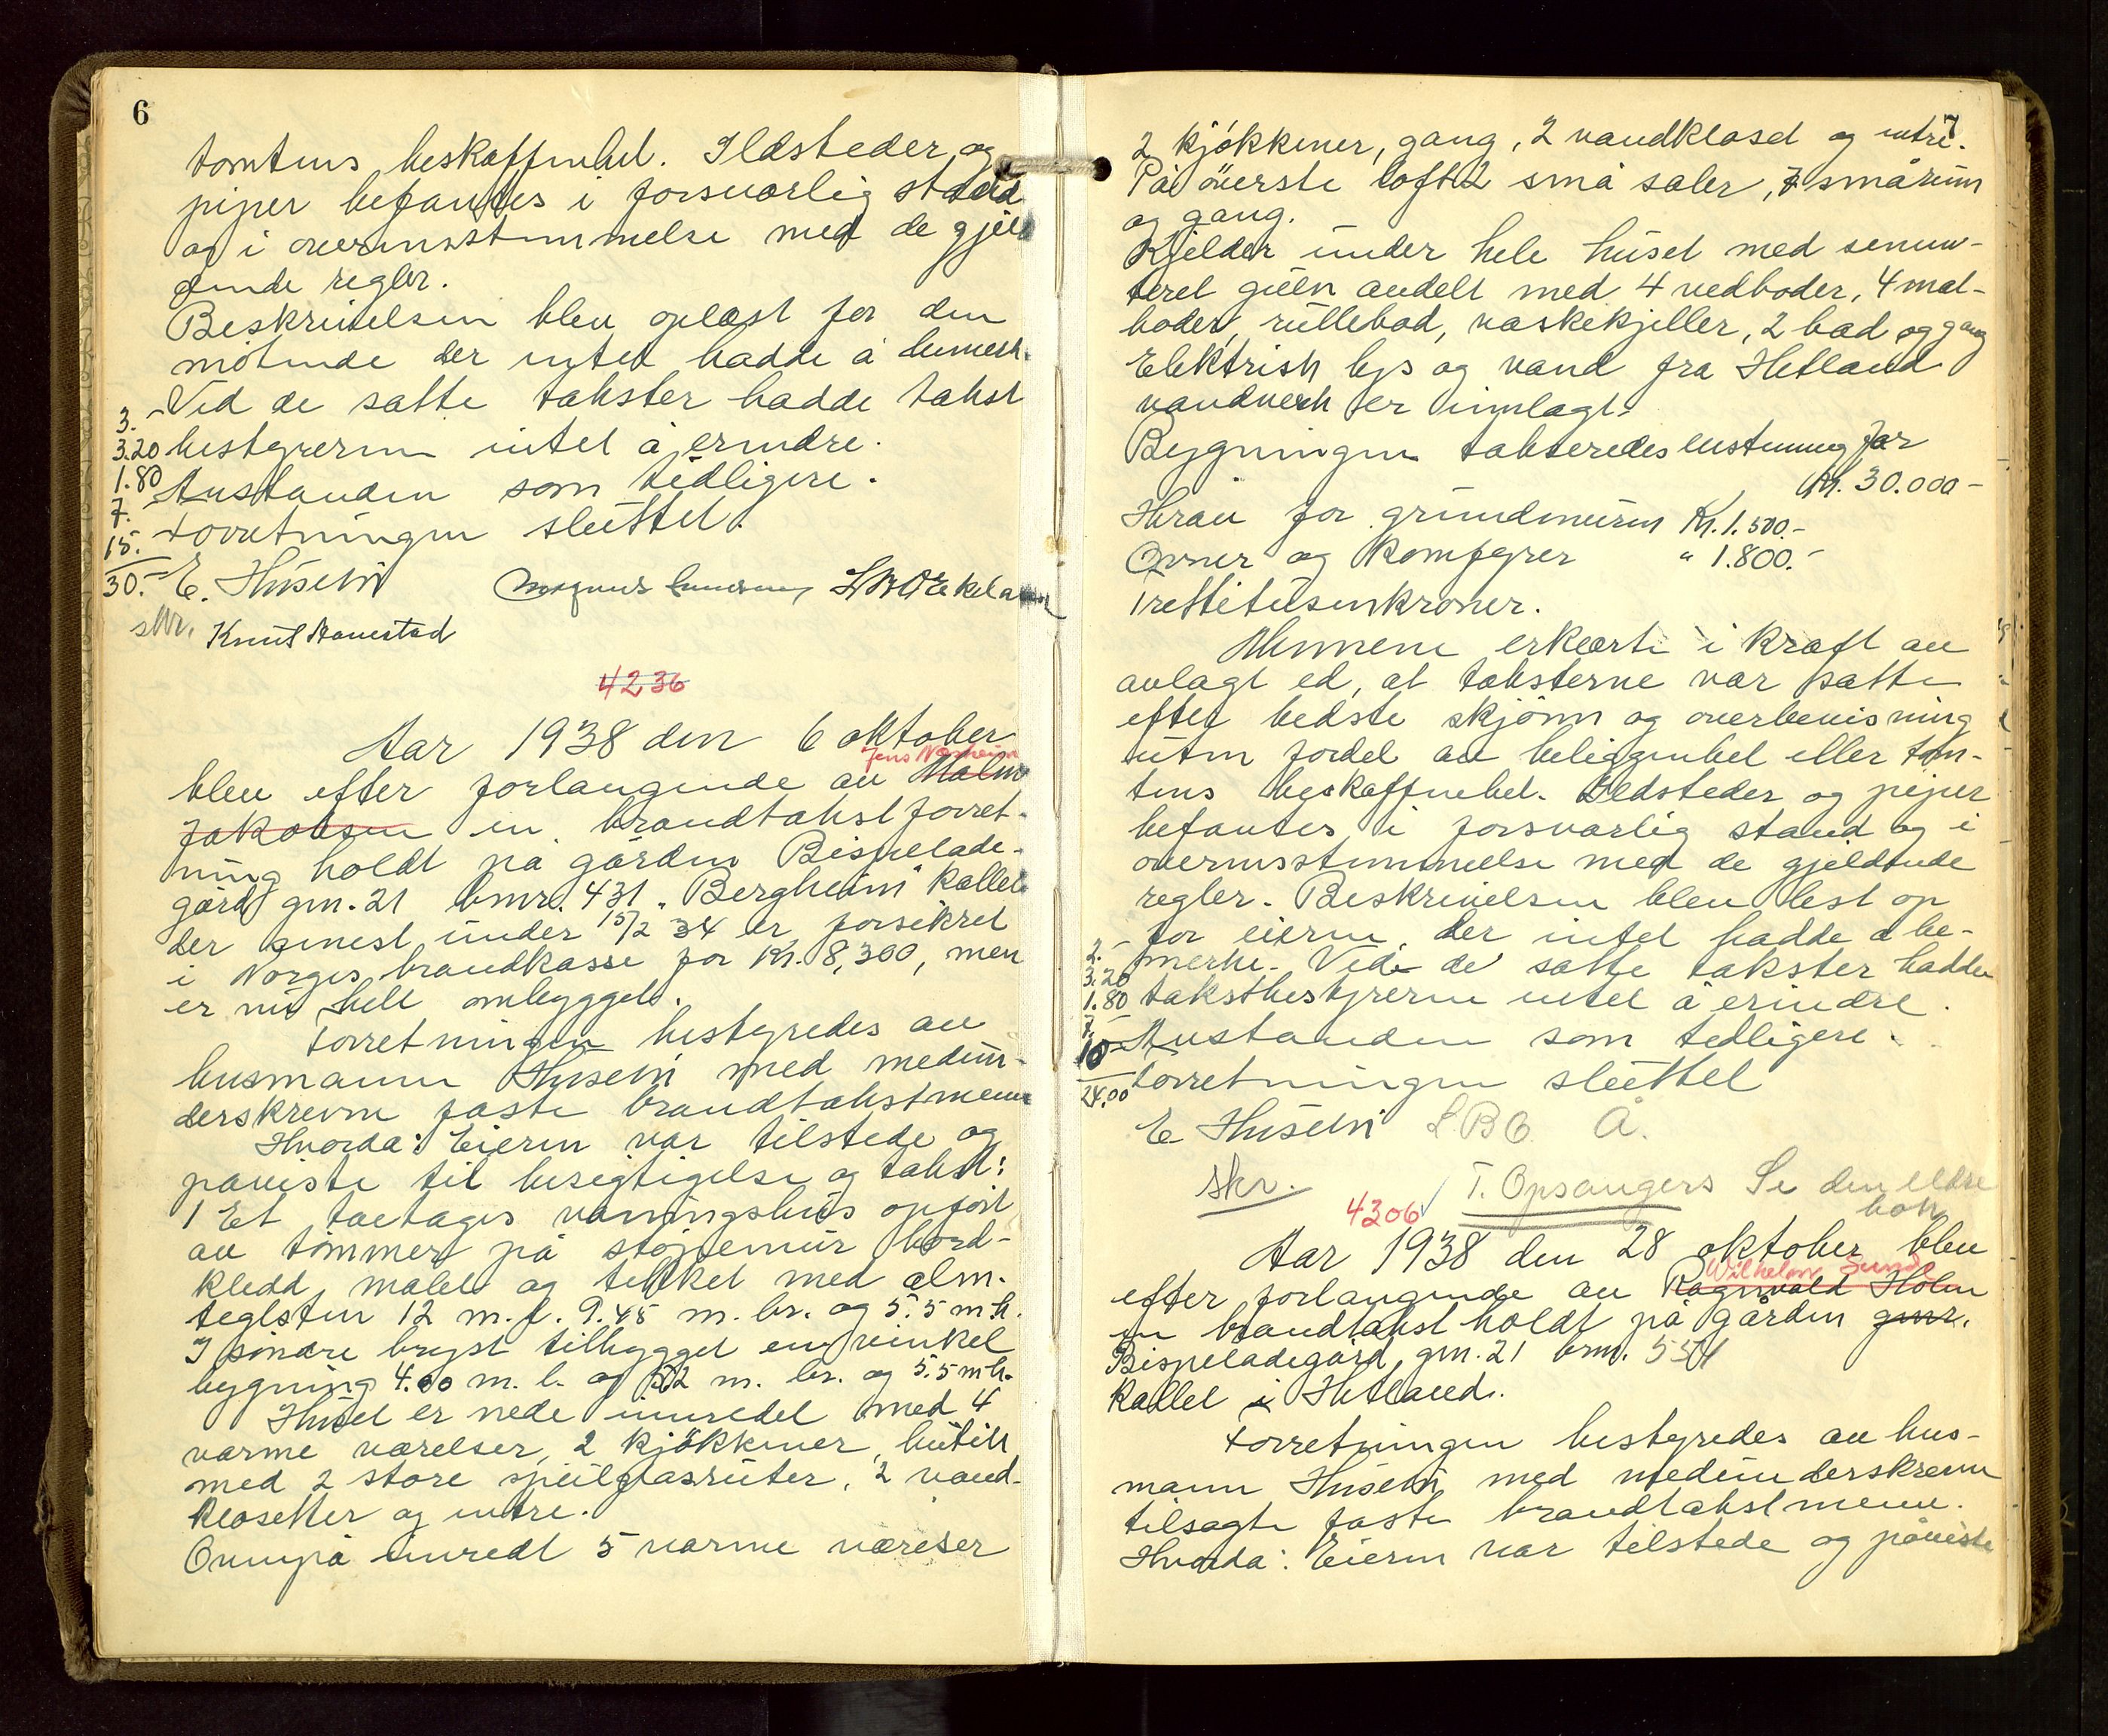 6
tomtens beskaffenhet. Ildsteder og
piper befantes i forsvarlig stand
og i overensstemmelse med de gjel
dende regler.
Beskrivelsen blev oplæst for den
møtende der intet hadde å bemerk.
Ved de satte takster hadde takst
3.-
3.20 bestyreren intet å erindre.
1.80
Avstanden som tidligere.
7.
Forretningen sluttet.
15.
30.- E. Husebø
skr. Knut Hanestad
4236
Aar 1938 den 6 oktober
Jens Næsheim
blev efter forlangende av Malm
Jakobsen en brandtakstforret-
ning holdt på gården Bispelade-
gård gnr. 21 bnr. 431 "Bergheim" kallet
der senest under 15/2 34 er forsikret
i Norges brandkasse for Kr. 8,300, men
er nu helt ombygget.
Forretningen bestyredes av
husmann Husebø med medun-
derskrevne faste brandtakstmenn
Hvorda: Eieren var tilstede og
påviste til besigtigelse og takst:
1 Et toetages våningshus opført
av tømmer på støpemur bord-
kledd, malet og tekket med alm.
teglsten 12 m. l. 9.45 m. br. og 5.5 m h.
I søndre bryst tilbygget en vinkel
bygning 4.00 m. l. og m. br. og 5.5 m h.
Huset er nede innredet med 4
varme værelser, 2 kjøkkener, butikk
med 2 store speilglasruter, 2 vand-
klosetter og entre.
Ovenpå innredt 5 varme værelser
7
2 kjøkkener, gang, 2 vandkloset og entre.
På øverste loft 2 små saler, 7 smårum
og gang.
Kjelder under hele huset med semen-
teret gulv avdelt med 4 vedboder, 4 mat-
boder, rullebod, vaskekjeller, 2 bad og gang
Elektrisk lys og vand fra Hetland
vandverk er innlagt.
Bygningen taksteredes enstemmig for
Kr. 30.000-
Herav for grundmuren Kr. 1.500.-
Ovner og komfyrer " 1.800.-
Trettitusenkroner.
Mennene erklærte i kraft av
avlagt ed, at taksterne var satte
efter bedste skjønn og overbevisning
uten fordel av beliggenhet eller tom-
tens beskaffenhet. Ildsteder og piper
befantes i forsvarlig stand og i
overensstemmelse med de gjeldende
regler. Beskrivelsen blev lest op
for eieren der intet hadde å be-
2.-
merke. Ved de satte takster hadde
3.20
1.80 takstbestyreren intet å erindre.
7.-
Avstanden som tidligere.
10-
Forretningen sluttet
24.00
E Husebø L.B.Ø. Å.
skr.
T. Opsangers Se den eldre
bok
4306 ✓
Aar 1938 den 28 oktober blev
Wilhelm Sund
efter forlangende av Ragnvald Holm
en brandtakst holdt på gården gnr.
Bispeladegård, gnr. 21 bnr. 554
kallet i Hetland.
Forretningen bestyredes av hus-
mann Husebø med medunderskrevne
tilsagte faste brandtakstmenn.
Hvorda: Eieren var tilstede og påviste